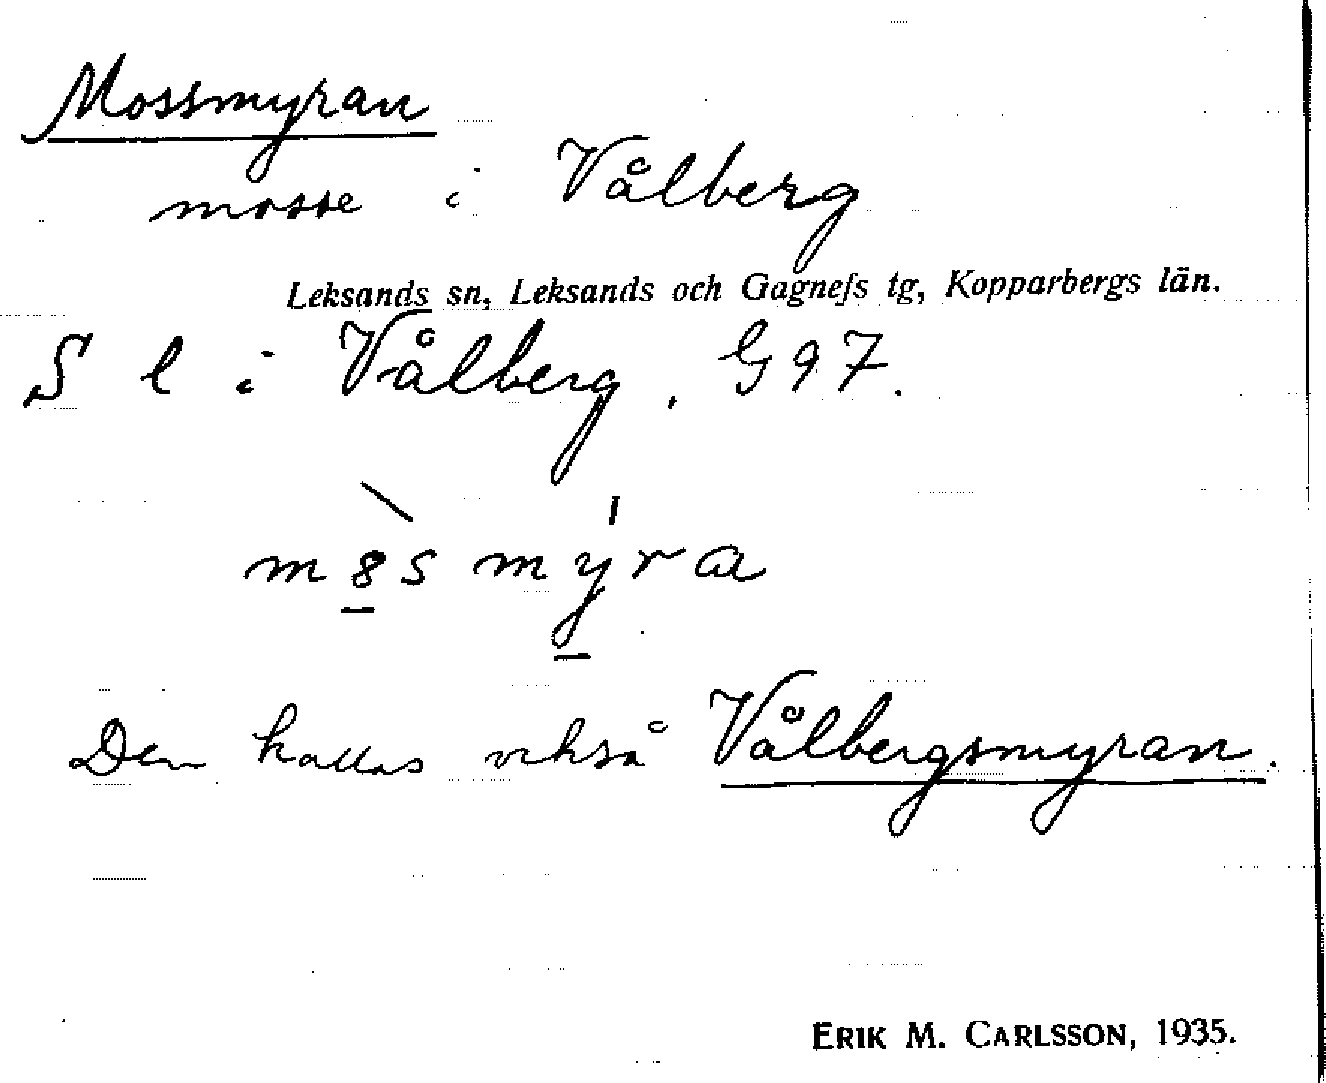 Mossmyran
mosse i Vålberg
Leksands sn, Leksands och Gagnefs tg, Kopparbergs län.
S l i Vålberg. G 97.
m8smyra
Den kallas också Vålbergsmyran.
ERIK M. CARLSSON, 1935.